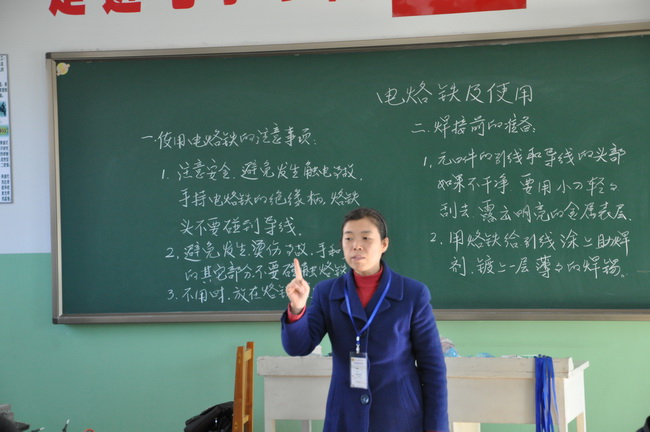 电烙铁及使用
一.使用电烙铁的注意事项:
1. 注意安全.避免发生触电事故.
手持电烙铁的绝缘柄,烙铁
头不要碰到导线.
2. 避免发生烫伤事故.手和
的其它部分不要碰触烙铁
3. 不用时.放在烙
二.焊接前的准备:
1. 元四件的引线和导线的头部
如果不干净 要用小刀轻々
刮去.露出明亮的金属表层.
2. 用烙铁给引线涂上助焊
剂.镀上一层薄々的焊锡.